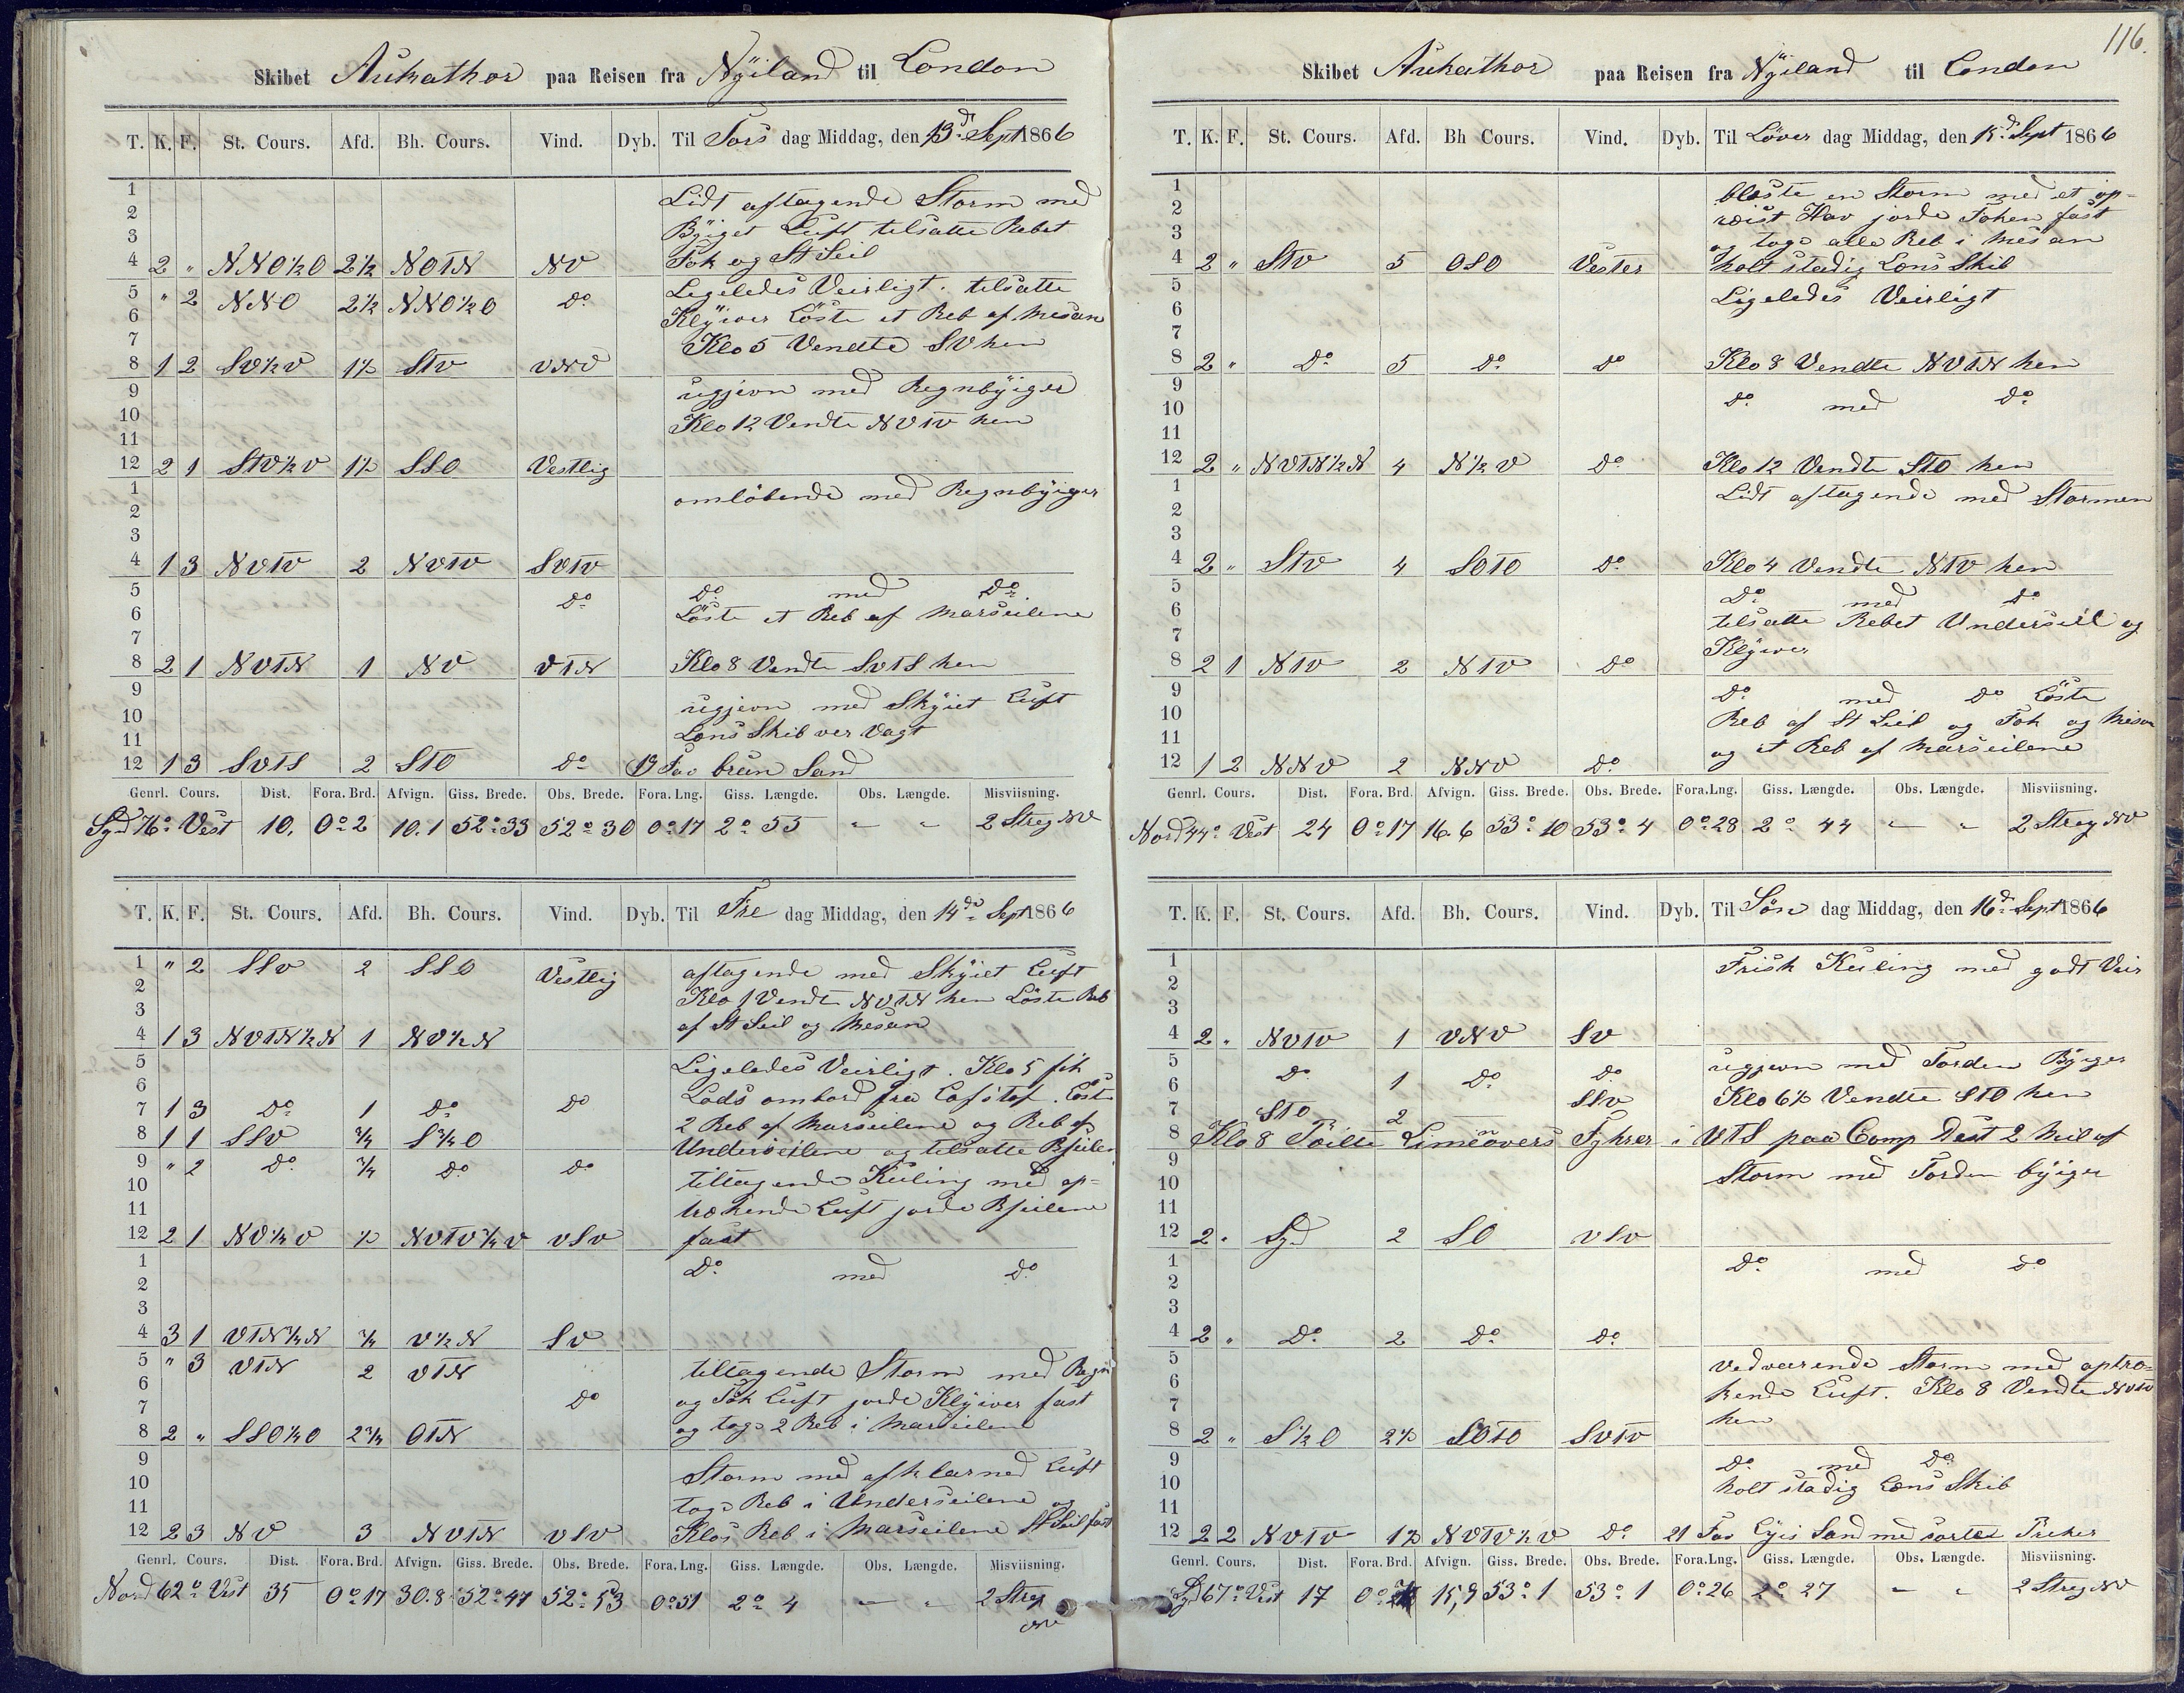 Skibet Aukathor paa Reisen fra Nÿland til London
T. K. F. St. Cours. Afd. Bh. Cours. Vind. Dyb. Til Tors dag Middag, den 13d Sept 1866
1 Lidt aftagende Storm med
2 Byiget Luft tilsatte Rebet
3 Fok og St Seil
4 2 " NNO½O 2½ NOTN NV
5 " 2 NNO 2½ NNO½O Do Ligeledes Veirligt. tilsatte
6 Klÿver Löste et Reb af Mesan
7 Klo 5 Vendte SV hen
8 1 2 SV½V 1½ STV VNV
9 ugjevn med Regnbÿiger
10 Klo 12 Vendte NVTV hen
11
12 2 1 STV½V 1½ SSO Vestlig
1 omlöbende med Regnbÿiger
2
3
4 1 3 NVTV 2 NVTV SVTV
5 Do Do med Do
6 Löste et Reb af Marseilene
7
8 2 1 NVTN 1 NV VTN Klo 8 Vendte SVTS hen
9 ugjevn med Skÿiet Luft
10 Lens Skib ver Vagt
11
12 1 3 SVTS 2 STO Do 19 Fav brun Sand
Genrl. Cours. Dist. Fora. Brd. Afvign. Giss. Brede. Obs. Brede. Fora. Lng. Giss. Længde. Obs. Længde. Misviisning.
Syd 76° Vest 10. 0° 2 10.1 52° 33 52° 30 0° 17 2° 55 " " 2 Streg NV
T. K. F. St. Cours. Afd. Bh. Cours. Vind. Dyb. Til Fre dag Middag, den 14de Sept 1866
1 " 2 SSV 2 SSO Vestlig aftagende med Skÿiet Luft
2 Klo 1 Vendte NVTN hen Löste Reb
3 af St Seil og Mesan
4 1 3 NVTN½N 1 NV½N
5 Ligeledes Veirligt. Klo 5 fik
6 Lods ombord fra
7 1 3 Do 1 Do Do 2 Reb af Marseilene og Reb af
8 1 1 SSV ¾ S¾O Underseilene og tilsatte Bseilen
9 " 2 Do ¾ Do Do tiltagende Kuling med op-
10 trækende Luft jorde Bseilene
11 fast
12 2 1 NV¼V ½ NVTV¾V VSV
1 Do med Do
2
3
4 3 1 VTN¾N ¾ V½N SV
5 " 3 VTN 2 VTN tiltagende Storm med Regn
6 og Tök Luft jorde Klÿver fast
7 Do og tog 2 Reb i Marseilene
8 2 " SSO¼O 2¾ OTN
9 Storm med afklarned Luft
10 tog Reb i Underseilene og
11 Klos Reb i Marseilene St Seil fast
12 2 3 NV 3 NVTN VSV
Genrl. Cours. Dist. Fora. Brd. Afvign. Giss. Brede. Obs. Brede. Fora. Lng. Giss. Længde. Obs. Længde. Misviisning.
Nord 62° Vest 35 0° 17 30.8 52° 47 52° 53 0° 51 2° 4 " " 2 Streg NV
116.
Skibet Aukathor paa Reisen fra Nÿland til London
T. K. F. St. Cours. Afd. Bh Cours. Vind. Dyb. Til Löver dag Middag, den 15d Sept 1866
1 blæste en Storm med et op-
2 rðist Hav jorde Foken fast
3 og tog alle Reb i Mesan
4 2 " STV 5 OSO Vester holt stadig Lens Skib
5 Ligeledes Veirligt
6
7
8 2 " Do 5 Do Do Klo 8 Vendte NVTN hen
9 Do med Do
10
11
12 2 " NVTN½N 4 N½V Do Klo 12 Vendte STO hen
1 Lidt aftagende med Stormen
2
3
4 2 " STV 4 SOTO Do Klo 4 Vendte NTV hen
5 Do med Do
6 tilsatte Rebet Underseil og
7 Klÿver
8 2 1 NTV 2 NTV Do
9 Do med Do Löste
10 Reb af St Seil og Fok og Mesan
11 og et Reb af Marseilene
12 1 2 NNV 2 NNV Do
Genrl. Cours. Dist. Fora. Brd. Afvign. Giss. Brede. Obs. Brede. Fora.Lng. Giss. Længde. Obs. Længde. Misviisning.
Nord 44° Vest 24 0° 17 16.6 53° 10 53° 4 0° 28 2° 44 " " 2 Streg NV
T. K. F. St. Cours. Afd. Bh. Cours. Vind. Dyb. Til Sön dag Middag, den 16d Sept 1866
1 Frisk Kuling med godt Veir
2
3
4 2 " NVTV 1 VNV SV
5 Do 1 Do Do ugjevn med Torden Bÿiger
6 Klo 6½ Vendte STO hen
7 STO 2 SSV
8 Klo 8 Fyhrer i VTS paa Comp Dist 2 Mil af
9 Storm med Torden bÿiger
10
11
12 2 " Syd 2 SO VSV
1 Do med Do
2
3
4 2 " Do 2 Do Do
5 vedværende Storm med optræ-
6 kende Luft. Klo 8 Vendte NVTV
7 hen
8 2 " S½O 2½ SOTO SVTV
9 Do med Do
10 holt stadig Lens Skib
11
12 2 2 NVTV 1½ NVTV½V Do 21 Fav Lÿis Sand med sorte Prikker
Genrl. Cours. Dist. Fora. Brd. Afvign. Giss. Brede. Obs. Brede. Fora.Lng. Giss. Længde. Obs. Længde. Misviisning.
Syd 67° Vest 17 15,9 53° 1 53° 1 0° 26 2° 27 " " 2 Streg NV